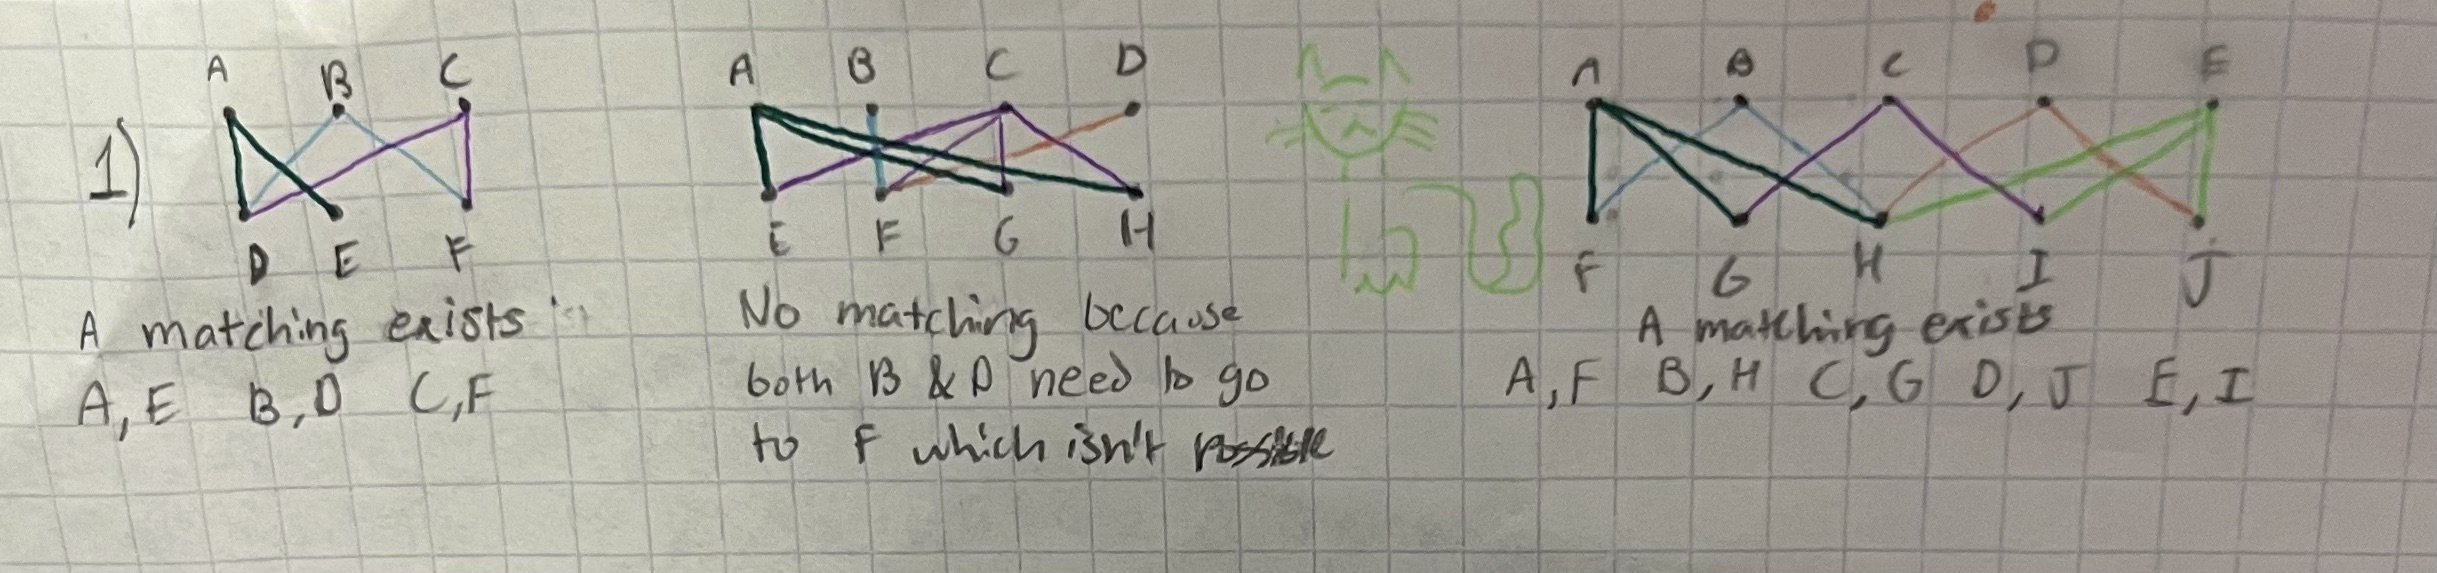 A B C
1)
D E F
A matching exists
A, E B, D C, F
A B C D
E F G H
No matching because
both B & D need to go
to F which isn't possible
A B C D E
F G H I J
A matching exists
A, F B, H C, G D, J E, I